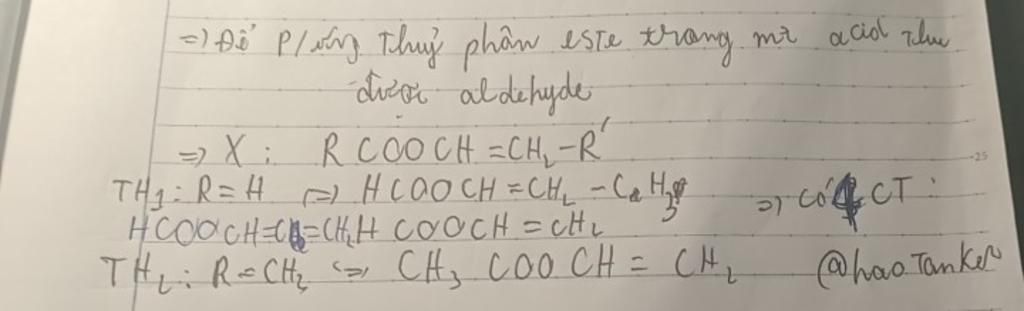 =) Để p/ứng thuỷ phân este trong mt acid thu
được aldehyde
=> X : R COOCH =CH₂-R'
TH₁ : R = H (=) HCOOCH =CH₂ - H₃ => có 4 CT :
HCOOCH= =CH₂H COOCH = CH₂
TH₂ : R = CH₃ <=> CH₃ COO CH = CH₂ @haoTanker
-25